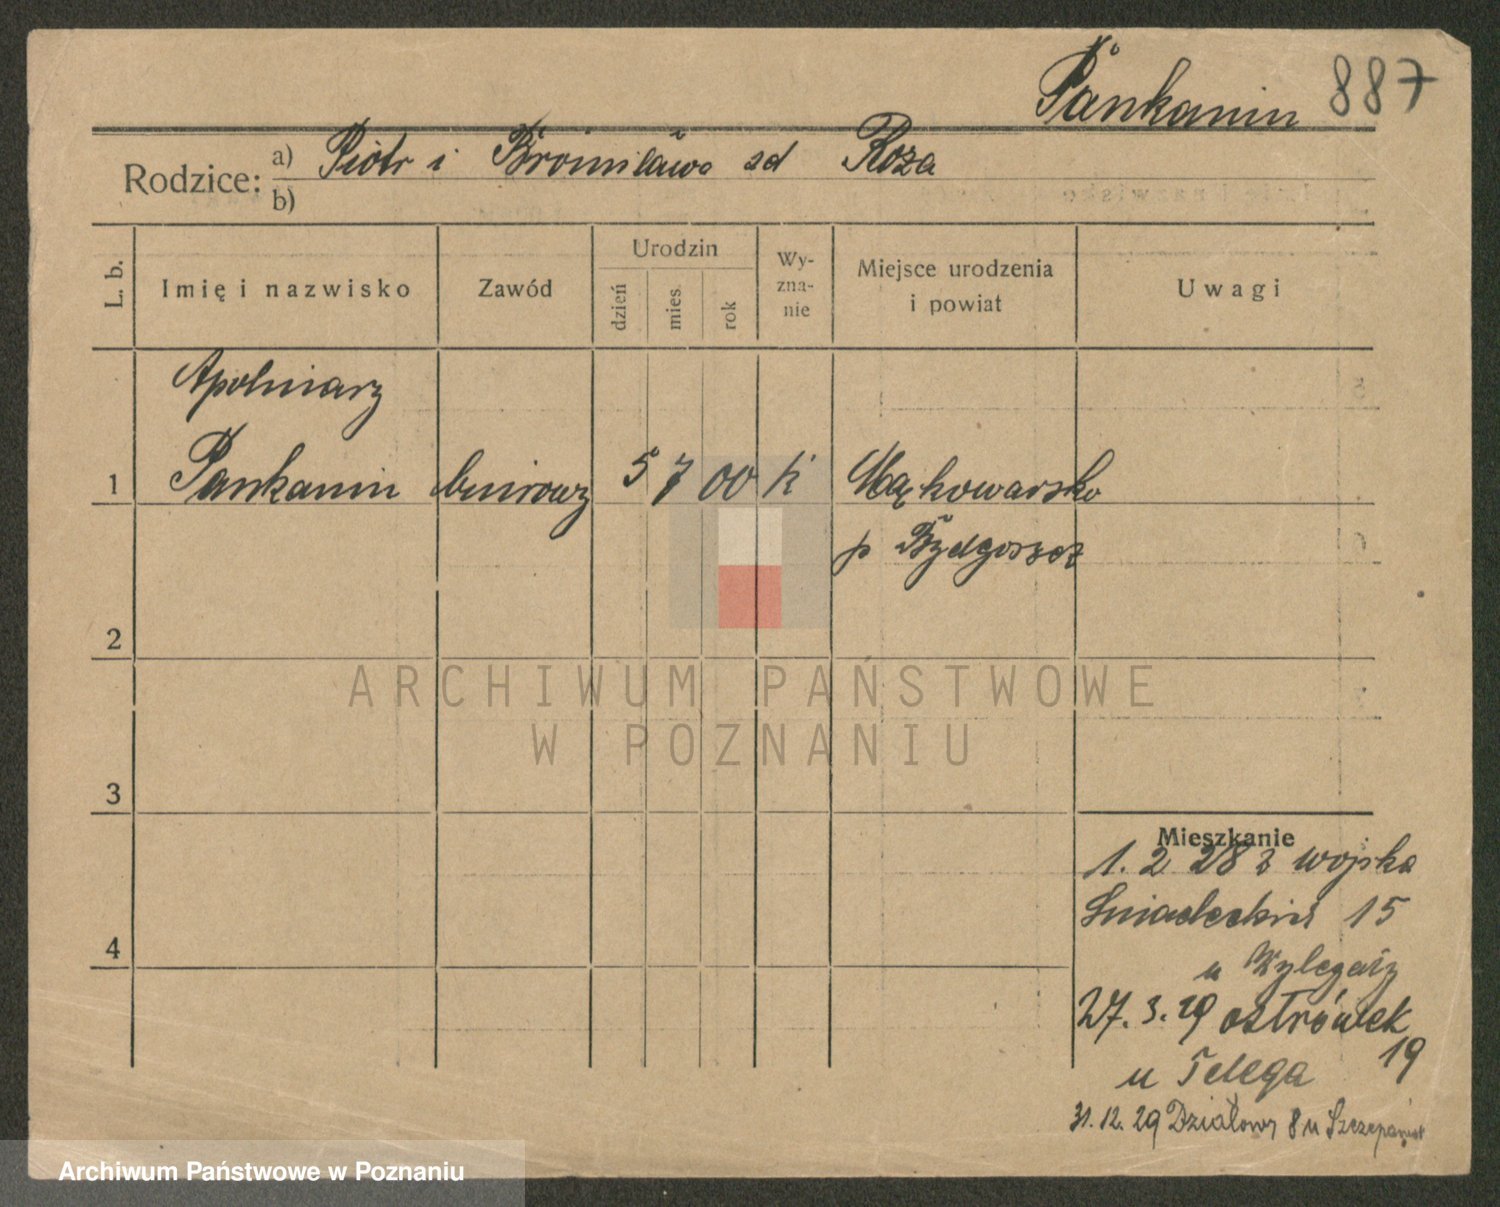 Pankanin 887
Rodzice: a) Piotr i Bronisława zd Roza
b)
L. b. Imię i nazwisko Zawód Urodzin dzień mies. rok Wy-zna-nie Miejsce urodzenia i powiat Uwagi
Apolinarz
1 Pankanin biurowy 5 7 00 K Mąkowarsko
p Bydgoszcz
2
ARCHIWUM PAŃSTWOWE
W POZNANIU
3
Mieszkanie
1. 2 28 z wojska
Sniadeckich 15
4
u Wylegały
27. 3. 29 ostrówek
19
u Telega
31. 12. 29 Działowy 8 u Szczepaniak
Archiwum Państwowe w Poznaniu